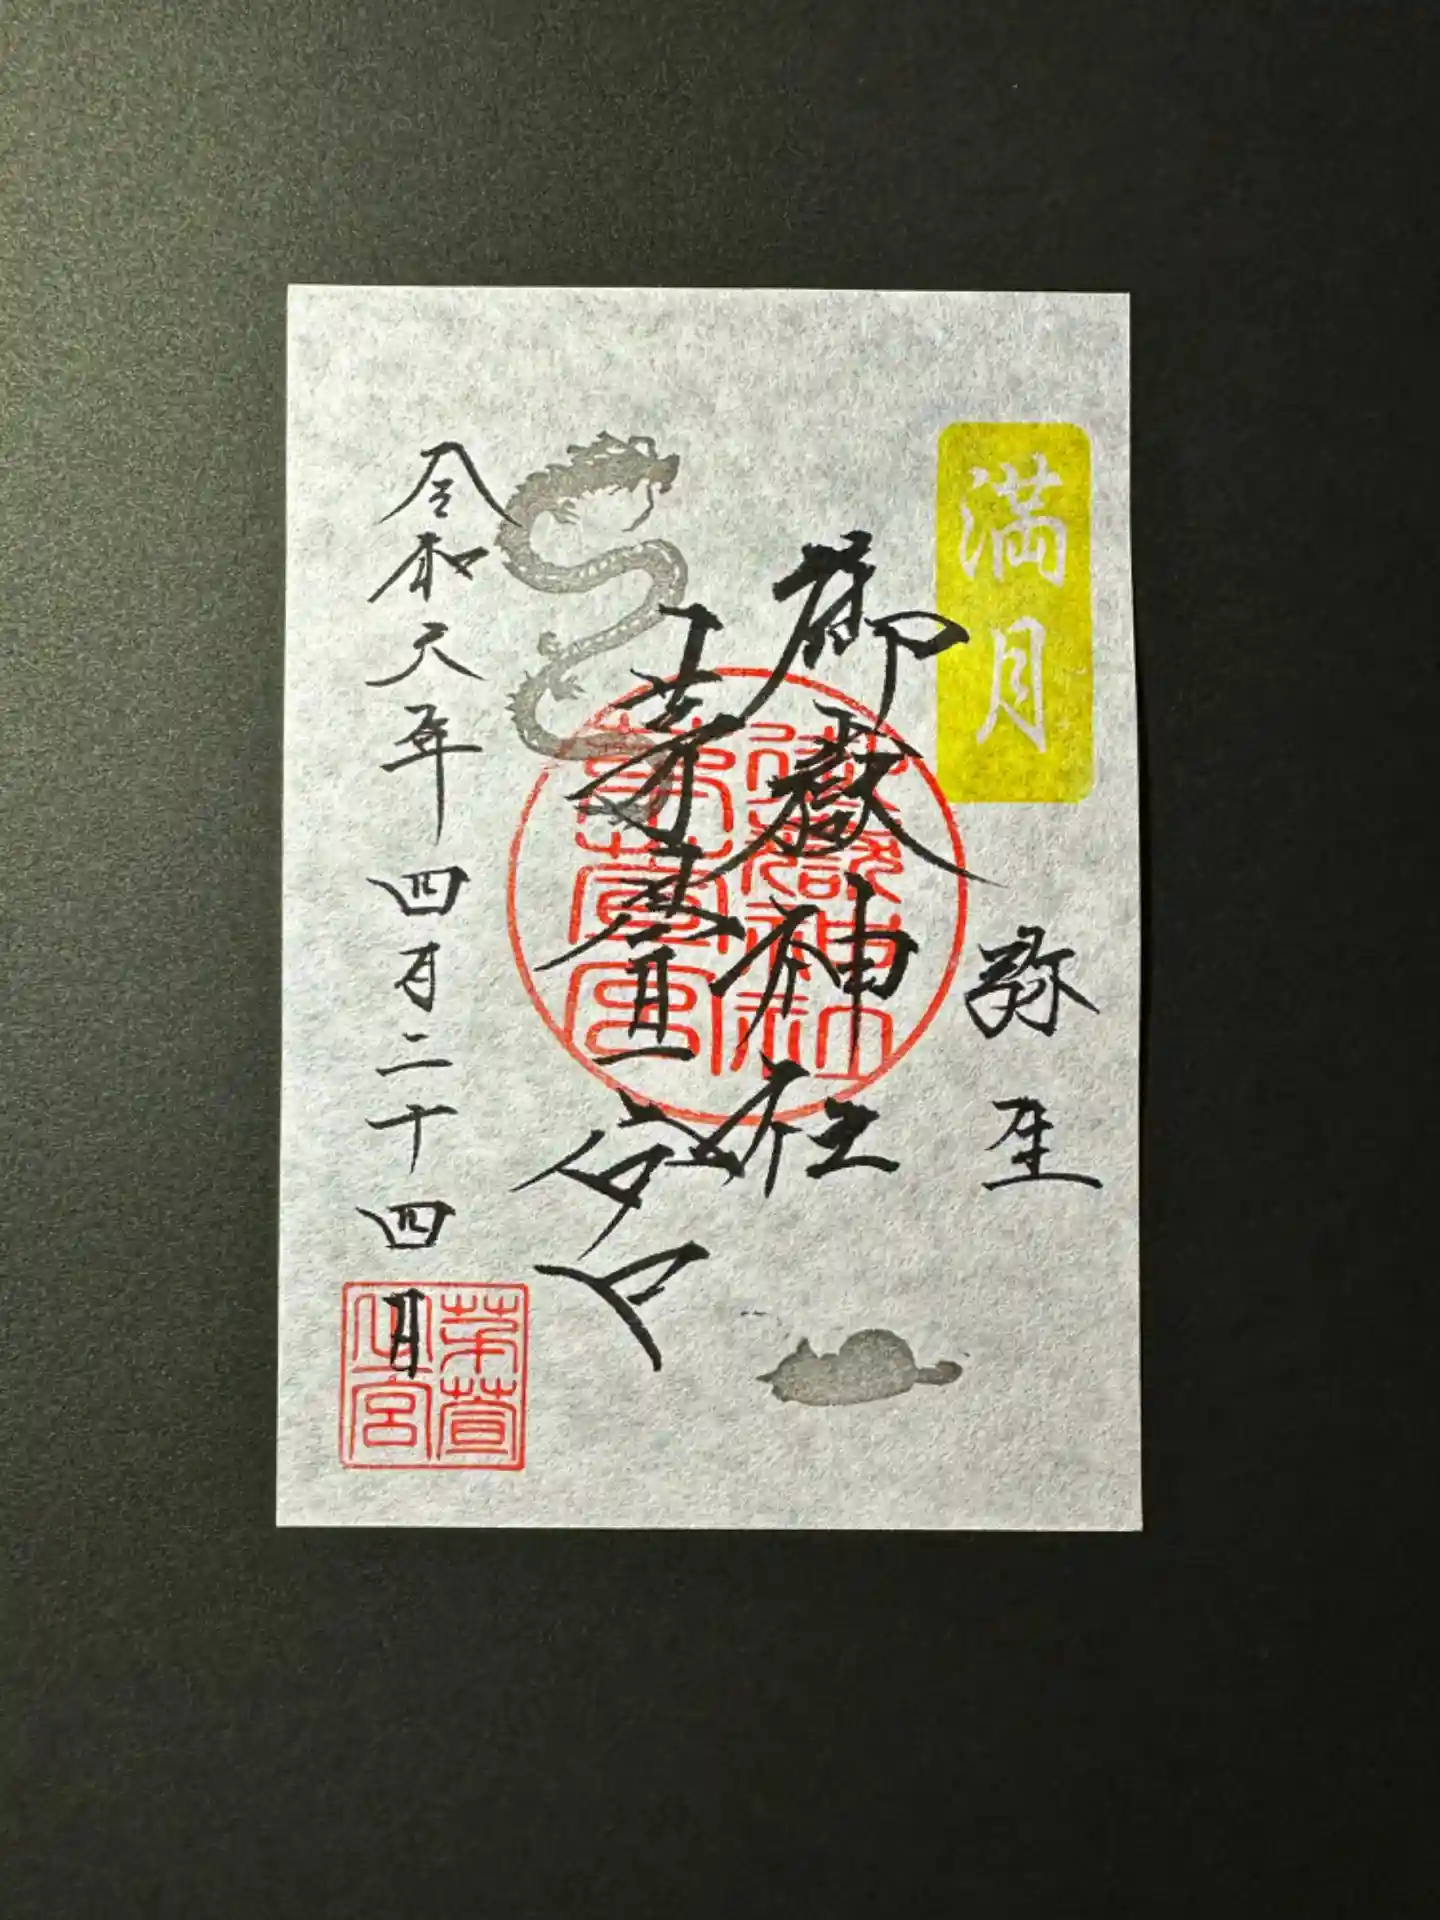 満月
弥生
御嶽神社
茅萱宮
御嶽神社
茅萱宮
令和六年四月二十四日
茅萱
之宮